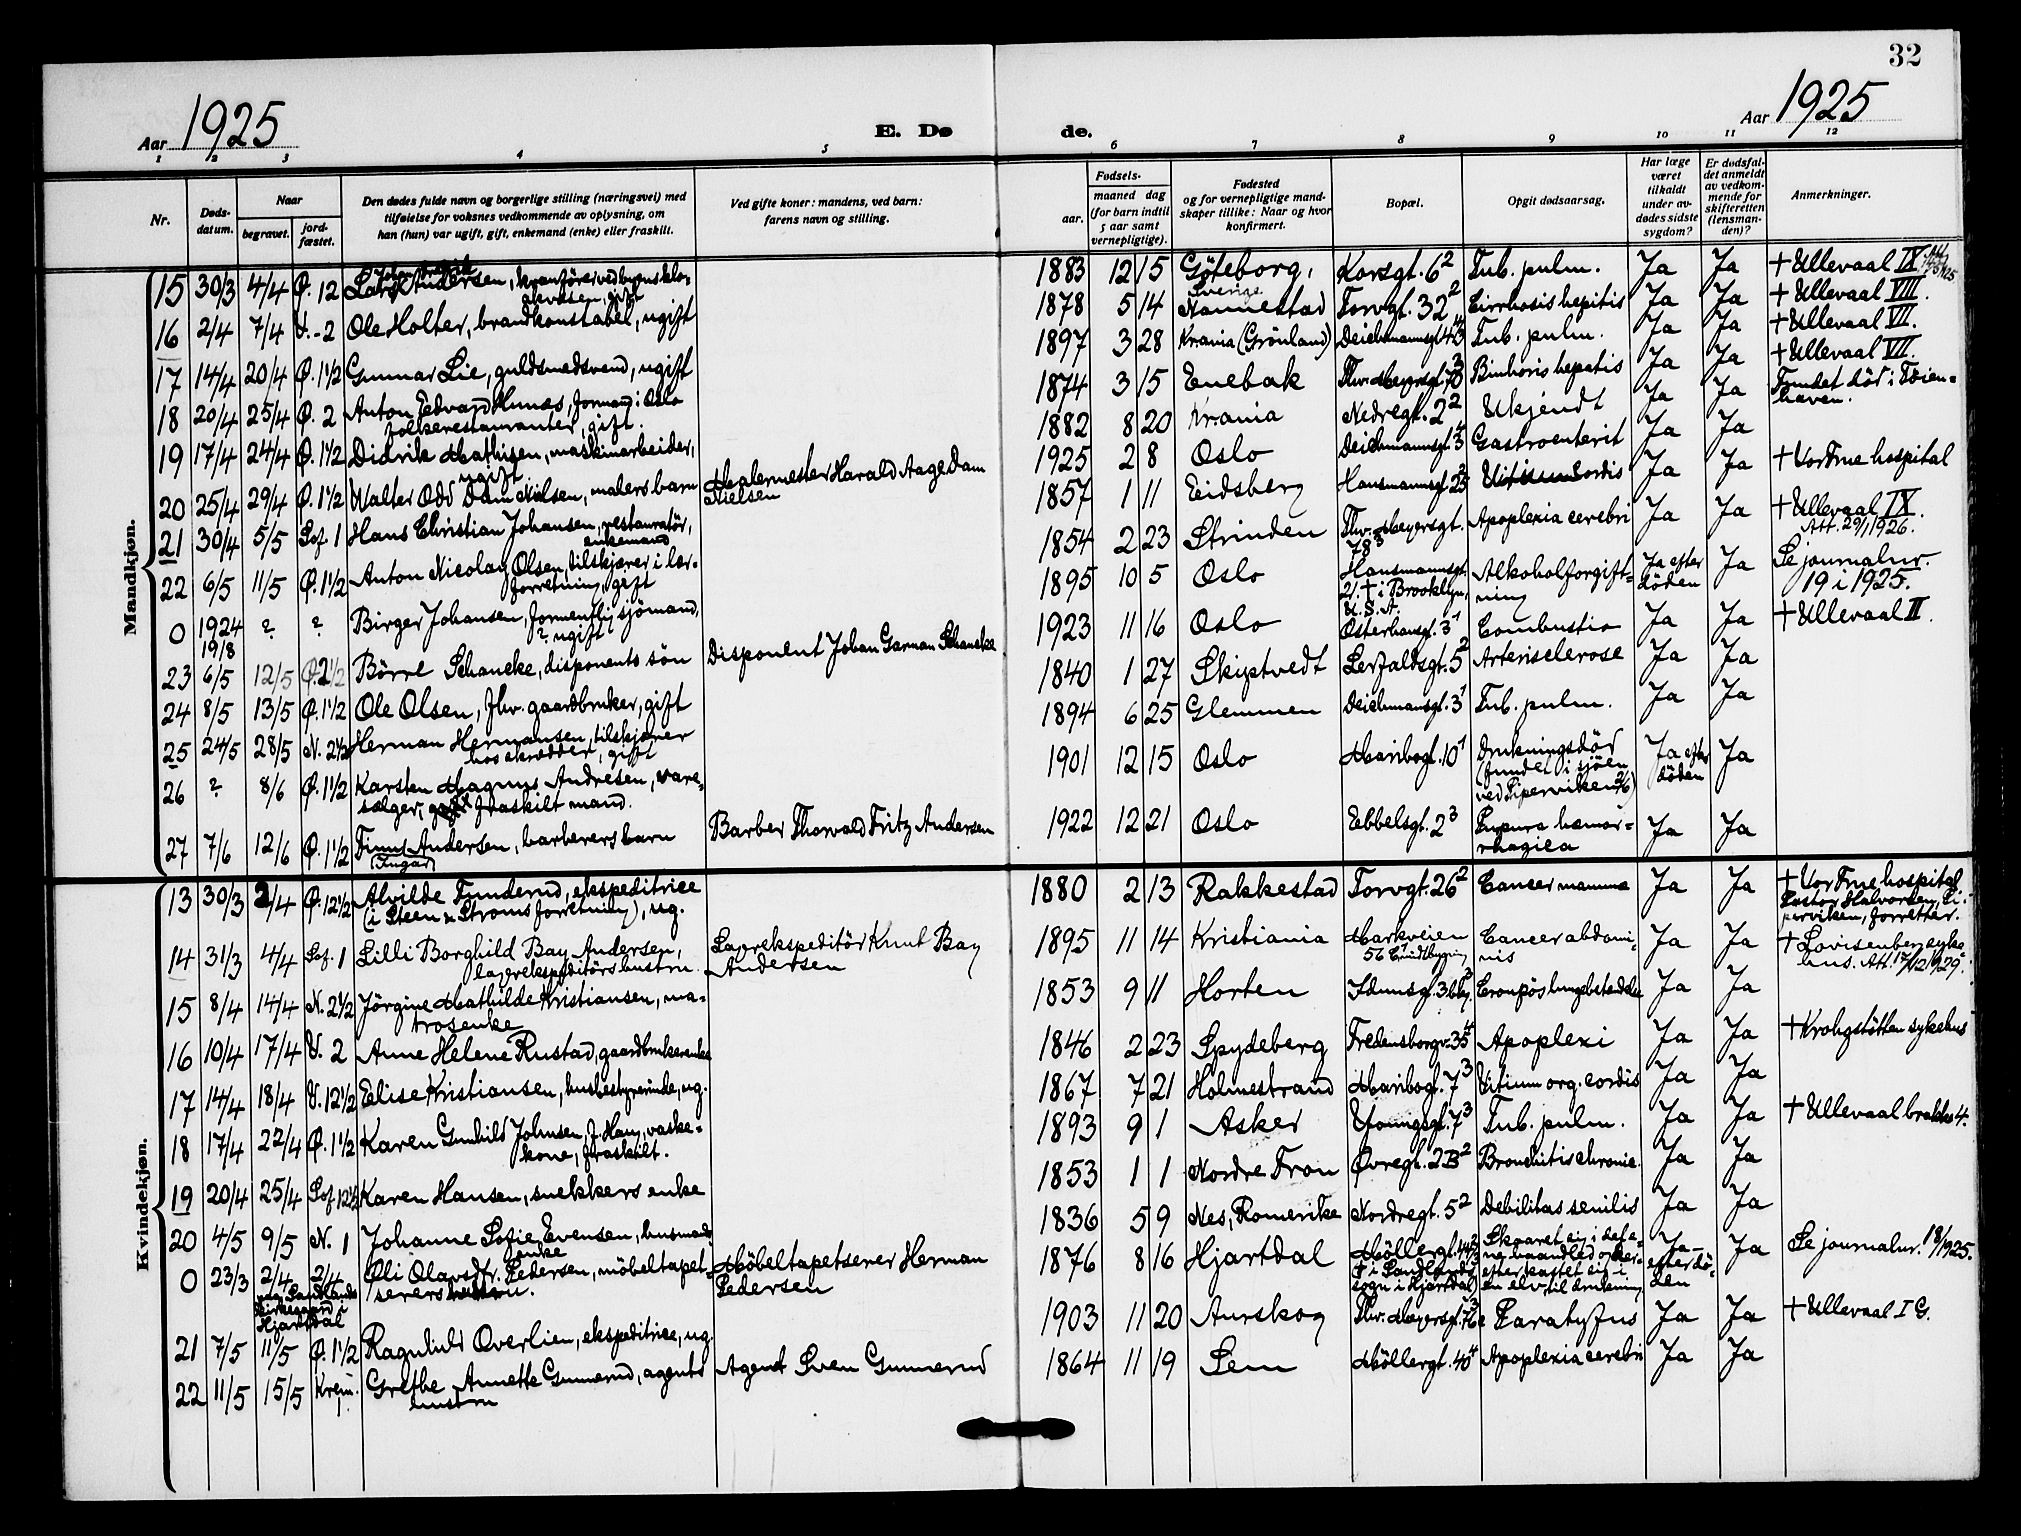 32
Aar 1925
E. Dø
de.
Aar 1925
1 2 3 4 5 6 7 8 9 10 11 12
Nr.
Døds-
datum.
Naar
begravet.
jord-
fæstet.
Den dødes fulde navn og borgerlige stilling (næringsvei) med
tilføielse for voksnes vedkommende av oplysning, om
han (hun) var ugift, gift, enkemand (enke) eller fraskilt.
Ved gifte koner: mandens, ved barn:
farens navn og stilling.
Fødsels-
aar.
maaned dag
(for barn indtil
5 aar samt
vernepligtige).
Fødested
og for vernepligtige mand-
skaper tillike: Naar og hvor
konfirmert.
Bopæl.
Opgit dødsaarsag.
Har læge
været
tilkaldt
under av-
dødes sidste
sygdom?
Er dødsfal-
det anmeldt
av vedkom-
mende for
skifteretten
(lensman-
den)?
Anmerkninger.
Mandkjøn.
15 30/3 4/4 Ø. 12 Lars Johan Fredrik Andersen, kranförer ved byens klo-
akvæsen, gift 1883 12 15 Göteborg, Sverige Korsgt. 6² Tub. pulm. Ja Ja + Ullevaal IX.
16 2/4 7/4 V. - 2 Ole Holter, brandkonstabel, ugift 1878 5 14 Nannestad Torvgt. 32² Cirrhosis hepitis Ja Ja + Ullevaal VIII.
17 14/4 20/4 Ø. 1½ Gunnar Lie, guldsmedsvend, ugift 1897 3 28 Kr.ania (Grönland) Deichmannsgt. Tub. pulm. Ja Ja + Ullevaal VII.
18 20/4 25/4 Ø. 2 Anton Edvard Hunæs, formand i Oslo
folkerestauranter, gift. 1874 3 15 Enebak Thv. Meyersgt. 70³ hepatis Ja Ja + Ullevaal VII.
19 17/4 24/4 Ø. 1½ Didrik Mathisen, maskinarbeider,
ugift 1882 8 20 Kr.ania Nedregt. 2² Ukjendt Ja Ja Fundet död i Töien-
haven.
20 25/4 29/4 Ø. 1½ Walter Odd Dam Nielsen, malers barn Malermester Harald Aage Dam
Nielsen 1925 2 8 Oslo Deichmannsgt. Gastroenterit Ja Ja
21 30/4 5/5 Sof 1 Hans Christian Johansen, restauratör,
enkemand 1857 1 11 Eidsberg Hausmannsgt. Vitium cordis Ja Ja + Vor Frue hospital
22 6/5 11/5 Ø. 1½ Anton Nicolay Olsen, tilskjærer i lær-
forretning, gift 1854 2 23 Strinden Thv. Meyersgt.
78³ Apoplexia cerebri Ja Ja + Ullevaal IX.
Att. 29/1 1926.
0 1924
19/8 ? ? Birger Johansen, formentlig sjömand,
? ugift 1895 10 5 Oslo Hausmannsgt.
21. + i Brooklyn,
U.S.A. Alkoholforgift-
ning Ja efter
döden Ja Se journalnr.
19 i 1925.
23 6/5 12/5 Ø. 2½ Börre Schancke, disponents sön Disponent Johan Garman Schancke 1923 11 16 Oslo Osterhausgt. 3¹ Combustio Ja Ja + Ullevaal II.
24 8/5 13/5 Ø. 1½ Ole Olsen, fhv. gaardbruker, gift 1840 1 27 Skiptvedt Lerfaldsgt. 5² Arterisclerose Ja Ja
25 24/5 28/5 N. 2½ Herman Hermansen, tilskjærer
hos skrædder, gift 1894 6 25 Glemmen Deichmansgt. 3¹ Tub. pulm. Ja Ja
26 ? 8/6 Ø. 1½ Karsten Magnus Andresen, vare-
sælger, fraskilt mand. 1901 12 15 Oslo Maribogt. 10¹ Drukningsdöd
(fundet i sjöen
ved Piperviken 2/6) Ja efter
döden Ja
27 7/6 12/6 Ø. 1½ Finn Andersen, barberers barn
(Ingar) Barber Thorvald Fritz Andersen 1922 12 21 Oslo Ebbelsgt. 2³ Pupura hæmor-
rhagica Ja Ja
Kvindekjøn.
13 30/3 2/4 Ø. 12½ Alvilde Funderud, ekspeditrice
(i Steen & Ströms forretning), ug. 1880 2 13 Rakkestad Torvgt. 26² Cancer mamma Ja Ja + Vor Frue hospital.
Pastor Halvorsen, Pi-
perviken, forretter.
14 31/3 4/4 Sof. 1 Lilli Borghild Bay Andersen,
lagerekspeditörs hustru. Lagerekspeditör Knut Bay
Andersen 1895 11 14 Kristiania Markveien
56 Cancer abdomi-
nis Ja Ja + Lovisenberg syke-
hus. Att. 17/12 1929.
15 8/4 14/4 N. 2½ Jörgine Mathilde Kristiansen, ma-
trosenke 1853 9 11 Horten Idunsgt. Croupös lungebetændelse Ja Ja
16 10/4 17/4 V. 2 Anne Helene Rustad, gaardbrukerenke 1846 2 23 Spydeberg Fredensborgv. 35⁴ Apoplexi Ja Ja + Krohgstötten sykehus
17 14/4 18/4 V. 12½ Elise Kristiansen, husbestyrerinde, ug. 1867 7 21 Holmestrand Maribogt. 7³ Vitium org. cordis Ja Ja
18 17/4 22/4 Ø. 1½ Karen Gunhild Johnsen, f. Haug, vaske-
kone, fraskilt. 1893 9 1 Asker Youngsgt. 7³ Tub. pulm. Ja Ja + Ullevaal brakke 4.
19 20/4 25/4 Sof. 12½ Karen Hansen, snekkers enke 1853 1 1 Nordre Fron Øvregt. 2B² Bronchitis chronic. Ja Ja
20 4/5 9/5 N. 1 Johanne Sofie Evensen, husmands
enke 1836 5 9 Nes, Romerike Nordregt. 5² Debilitas senilis Ja Ja
0 23/3 2/4 2/4
paa Landlands
kirkegaard i
Hjartdal Øli Olavsdtr. Pedersen, möbeltapet-
serers hustru. Möbeltapetserer Herman
Pedersen 1876 8 16 Hjartdal Möllergt. 
+ i Landlands
sogn i Hjartdal Skaaret sig i det e-
ne haandled og der-
efter kastet sig i
en elv til drukning Ja -
efter dö-
den Ja Se journalnr. 18/1925.
21 7/5 11/5 Ø. 1½ Ragnhild Overlien, ekspeditrice, ug. 1903 11 20 Aurskog Thv. Meyersgt. Paratyfus Ja Ja + Ullevaal I G.
22 11/5 15/5 Krem.
1. Grethe Annette Gunnerud, agents
hustru Agent Sven Gunnerud 1864 11 19 Sem Möllergt. 40⁴ Apoplexia cerebri Ja Ja